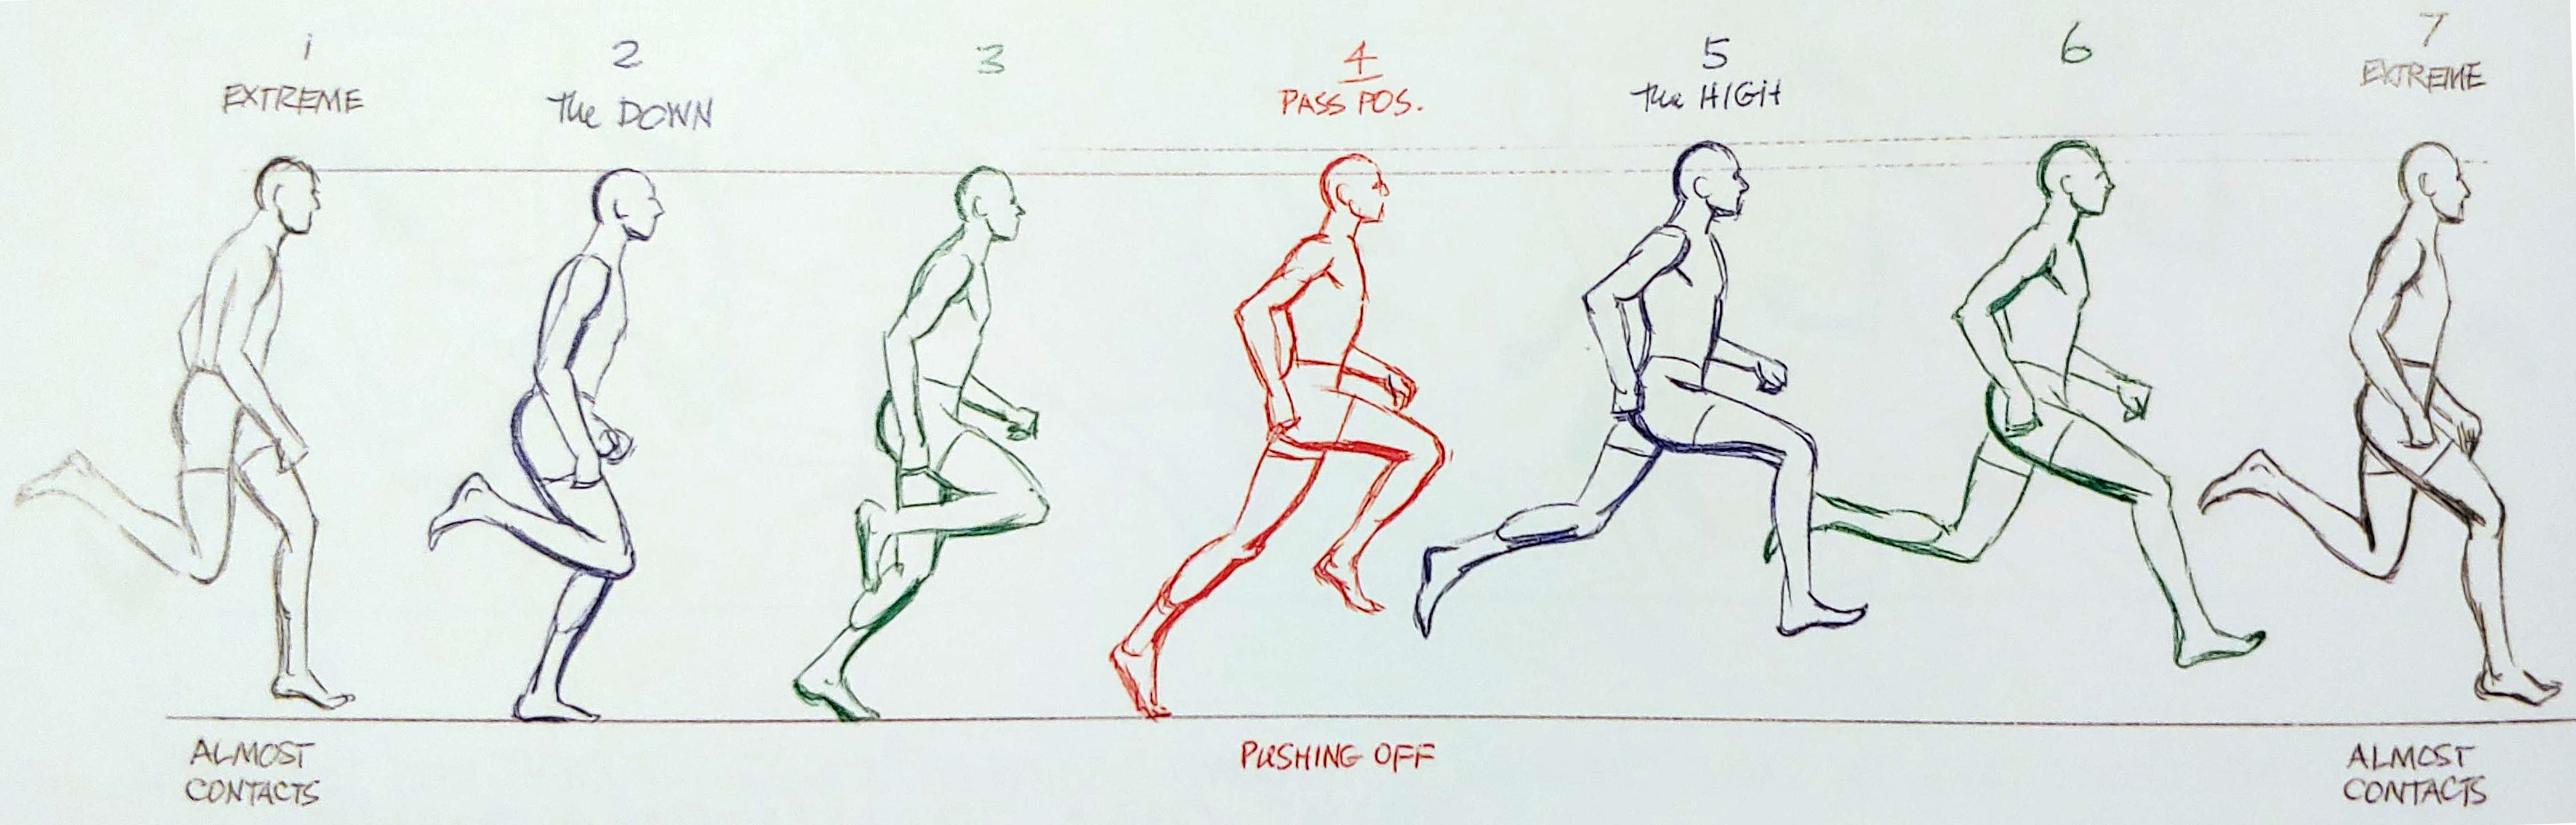 1
EXTREME
2
The DOWN
3
4
PASS POS.
5
The HIGH
6
7
EXTREME
ALMOST
CONTACTS
PUSHING OFF
ALMOST
CONTACTS